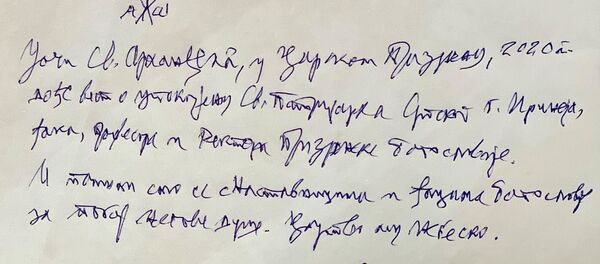 Уочи Св. Архангела, у Царском Призрену, 2020.
вест о упокојењу Св. Патријарха Српског г. Иринеја,
ђака, професора и Ректора Призренске богословије.
И помолили смо се с Наставницима и ђацима богословије
за покој његове душе. Царство му Небеско.